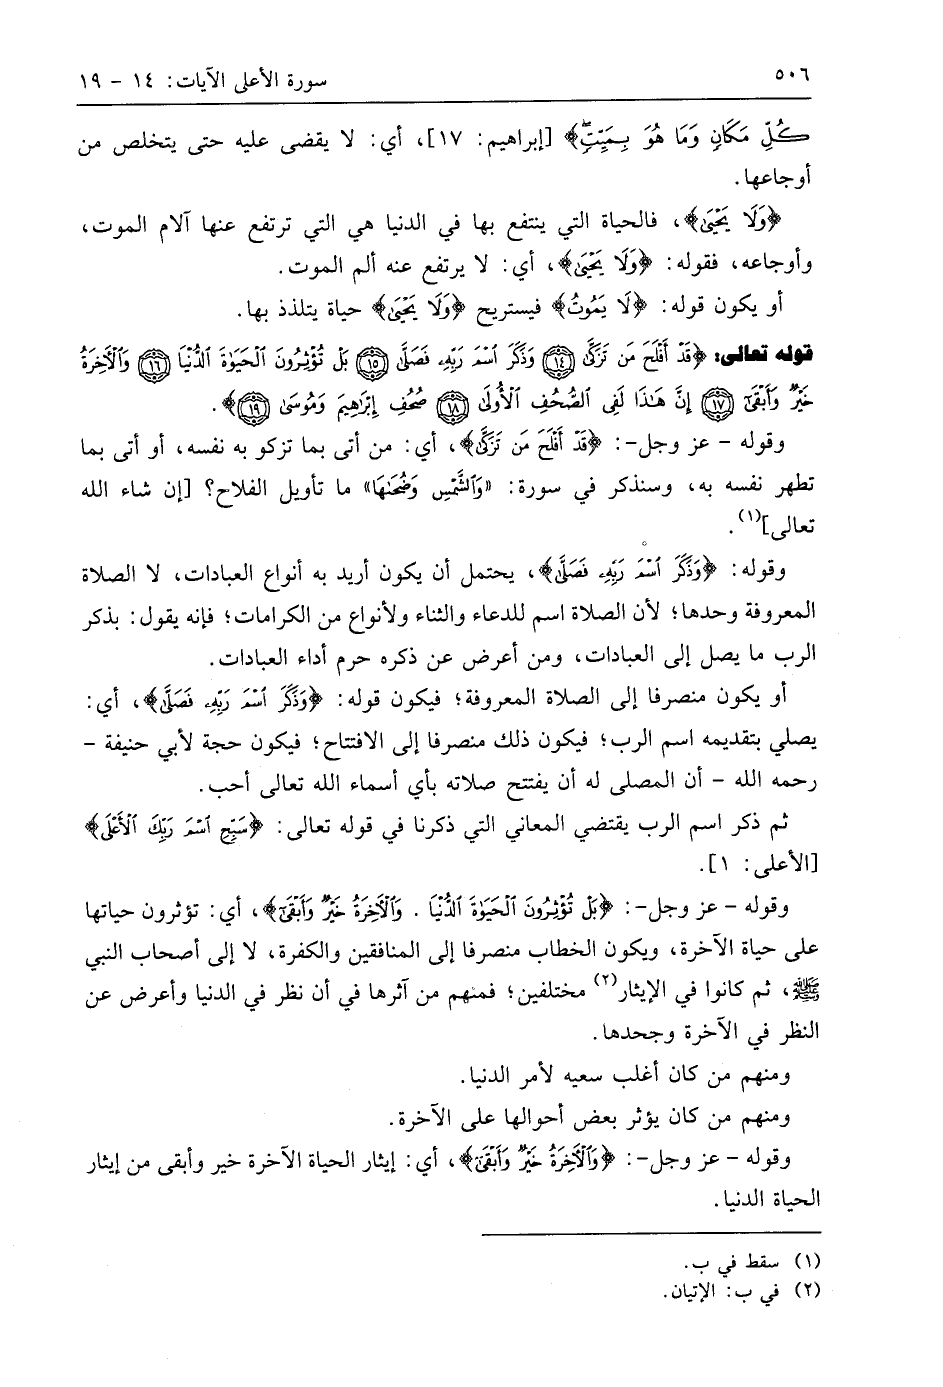 ٥٠٦ سورة الأعلى الآيات: ١٤ - ١٩
كُلِّ مَكَانٍ وَمَا هُوَ بِمَيِّتٍۖ﴾ [إبراهيم: ١٧]، أي: لا يقضى عليه حتى يتخلص من
أوجاعها.
﴿وَلَا يَحْيَىٰ﴾، فالحياة التي ينتفع بها في الدنيا هي التي ترتفع عنها آلام الموت،
وأوجاعه، فقوله: ﴿وَلَا يَحْيَىٰ﴾، أي: لا يرتفع عنه ألم الموت.
أو يكون قوله: ﴿لَا يَمُوتُ﴾ فيستريح ﴿وَلَا يَحْيَىٰ﴾ حياة يتلذذ بها.
قوله تعالى: ﴿قَدْ أَفْلَحَ مَن تَزَكَّىٰ ١٤ وَذَكَرَ ٱسْمَ رَبِّهِۦ فَصَلَّىٰ ١٥ بَلْ تُؤْثِرُونَ ٱلْحَيَوٰةَ ٱلدُّنْيَا ١٦ وَٱلْأَخِرَةُ
خَيْرٌ وَأَبْقَىٰٓ ١٧ إِنَّ هَـٰذَا لَفِى ٱلصُّحُفِ ٱلْأُولَىٰ ١٨ صُحُفِ إِبْرَٰهِيمَ وَمُوسَىٰ ١٩﴾.
وقوله - عز وجل-: ﴿قَدْ أَفْلَحَ مَن تَزَكَّىٰ﴾، أي: من أتى بما تزكو به نفسه، أو أتى بما
تطهر نفسه به، وسنذكر في سورة: «وَٱلشَّمْسِ وَضُحَىٰهَا» ما تأويل الفلاح؟ [إن شاء الله
تعالى](١).
وقوله: ﴿وَذَكَرَ ٱسْمَ رَبِّهِۦ فَصَلَّىٰ﴾، يحتمل أن يكون أريد به أنواع العبادات، لا الصلاة
المعروفة وحدها؛ لأن الصلاة اسم للدعاء والثناء ولأنواع من الكرامات؛ فإنه يقول: بذكر
الرب ما يصل إلى العبادات، ومن أعرض عن ذكره حرم أداء العبادات.
أو يكون منصرفا إلى الصلاة المعروفة؛ فيكون قوله: ﴿وَذَكَرَ ٱسْمَ رَبِّهِۦ فَصَلَّىٰ﴾، أي:
يصلي بتقديمه اسم الرب؛ فيكون ذلك منصرفا إلى الافتتاح؛ فيكون حجة لأبي حنيفة -
رحمه الله - أن المصلى له أن يفتتح صلاته بأي أسماء الله تعالى أحب.
ثم ذكر اسم الرب يقتضي المعاني التي ذكرنا في قوله تعالى: ﴿سَبِّحِ ٱسْمَ رَبِّكَ ٱلْأَعْلَى﴾
[الأعلى: ١].
وقوله - عز وجل-: ﴿بَلْ تُؤْثِرُونَ ٱلْحَيَوٰةَ ٱلدُّنْيَا . وَٱلْأَخِرَةُ خَيْرٌ وَأَبْقَىٰٓ﴾، أي: تؤثرون حياتها
على حياة الآخرة، ويكون الخطاب منصرفا إلى المنافقين والكفرة، لا إلى أصحاب النبي
ﷺ، ثم كانوا في الإيثار(٢) مختلفين؛ فمنهم من آثرها في أن نظر في الدنيا وأعرض عن
النظر في الآخرة وجحدها.
ومنهم من كان أغلب سعيه لأمر الدنيا.
ومنهم من كان يؤثر بعض أحوالها على الآخرة.
وقوله - عز وجل-: ﴿وَٱلْأَخِرَةُ خَيْرٌ وَأَبْقَىٰٓ﴾، أي: إيثار الحياة الآخرة خير وأبقى من إيثار
الحياة الدنيا.
(١) سقط في ب.
(٢) في ب: الإتيان.